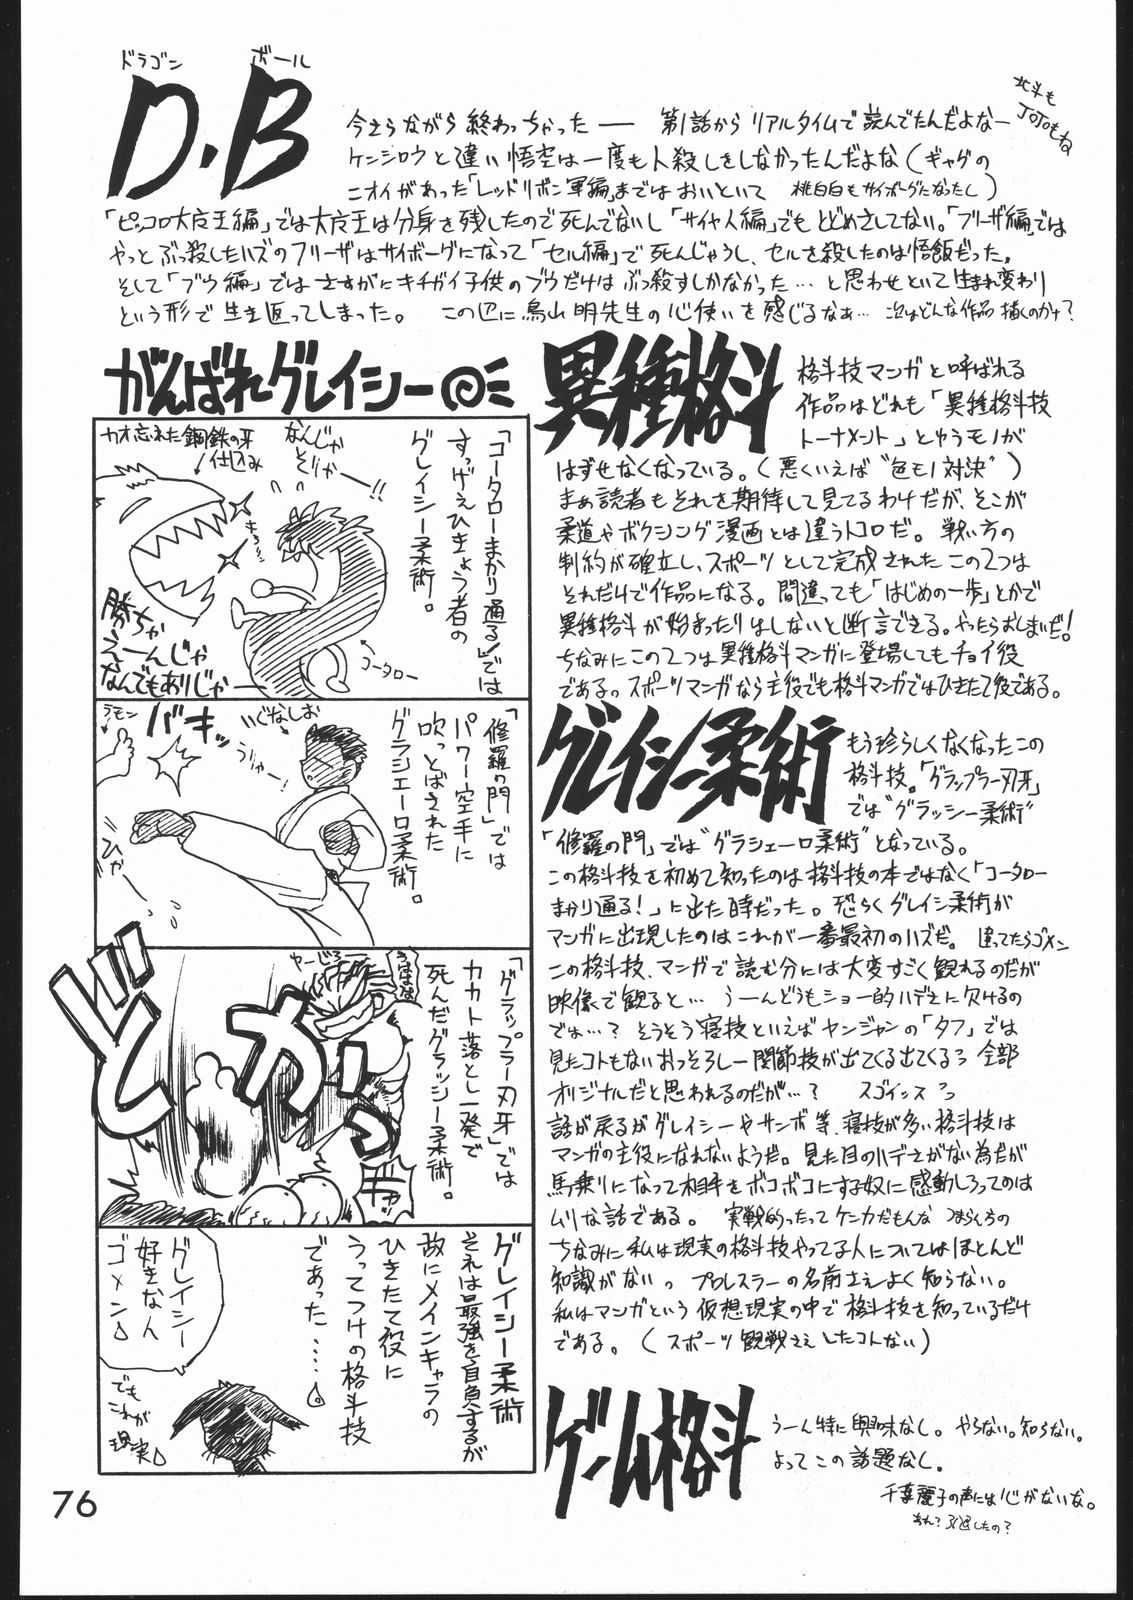 ドラゴン ボール
D.B
北斗も
JOJOもね
今さらながら終わっちゃった── 第1話からリアルタイムで読んでたんだよなー
ケンシロウと違い悟空は一度も人殺しをしなかったんだよな(ギャグの
ニオイがあった「レッドリボン軍編」まではおいといて 桃白白もサイボーグになったし)
「ピッコロ大魔王編」では大魔王は分身を残したので死んでないし「サイヤ人編」でもとどめさしてない。「フリーザ編」では
やっとぶっ殺したハズのフリーザはサイボーグになって「セル編」で死んじゃうし、セルを殺したのは悟飯だった。
そして「ブウ編」ではさすがにキチガイ子供のブウだけはぶっ殺すしかなかった…と思わせといて生まれ変わり
という形で生き返ってしまった。 この辺に鳥山明先生の心使いを感じるなぁ… 次はどんな作品描くのかナ?
がんばれグレイシー
「コータローまかり通る!」では
すっげえひきょう者の
グレイシー柔術。
なんじゃ
そりゃー!!
カオ忘れた
鋼鉄の牙
仕込み
キラッ
勝ちゃ
えーんじゃ
なんでもありじゃー
コータロー
「修羅の門」では
パワー空手に
吹っとばされた
グラシエーロ柔術。
いぐなしお
うりゃー!
バキッ
ラモン
ひゃー
「グラップラー刃牙」では
カカト落とし一発で
死んだグラッシー柔術。
やーじろー
うははは
どかっ
ギャッ
グレイシー柔術
それは最強を自負するが
故にメインキャラの
ひきたて役に
うってつけの格斗技
であった……
グレイシー
好きな人
ゴメン
でも
これが
現実
異種格斗
格斗技マンガと呼ばれる
作品はどれも「異種格斗技
トーナメント」とゆうモノが
はずせなくなっている。(悪くいえば“色モノ対決”)
まぁ読者もそれを期待して見てるわけだが、そこが
柔道やボクシング漫画とは違うトコロだ。戦い方の
制約が確立し、スポーツとして完成されたこの2つは
それだけで作品になる。間違っても「はじめの一歩」とかで
異種格斗が始まったりはしないと断言できる。やったらおしまいだ!
ちなみにこの2つは異種格斗マンガに登場してもチョイ役
である。スポーツマンガなら主役でも格斗マンガではひきたて役である。
グレイシー柔術
もう珍らしくなくなったこの
格斗技。「グラップラー刃牙」
では“グラッシー柔術”
「修羅の門」では“グラシエーロ柔術”となっている。
この格斗技を初めて知ったのは格斗技の本ではなく「コータロー
まかり通る!」に出た時だった。恐らくグレイシー柔術が
マンガに出現したのはこれが一番最初のハズだ。違ってたらゴメン
この格斗技、マンガで読む分には大変すごく観れるのだが
映像で観ると… うーんどうもショー的ハデさに欠けるの
では…?そうそう寝技といえばヤンジャンの「タフ」では
見たコトもないおっそろしー関節技が出てくる出てくるっ 全部
オリジナルだと思われるのだが…? スゴイッスっ
話が戻るがグレイシーやサンボ等、寝技が多い格斗技は
マンガの主役になれないようだ。見た目のハデさがない為だが
馬乗りになって相手をボコボコにする奴に感動しろってのは
ムリな話である。 実戦的ったってケンカだもんな つまらんちの
ちなみに私は現実の格斗技やってる人についてはほとんど
知識がない。プロレスラーの名前さえよく知らない。
私はマンガという仮想現実の中で格斗技を知っているだけ
である。(スポーツ観戦さえしたコトない)
ゲーム格斗
うーん特に興味なし。やらない。知らない。
よってこの話題なし。
千葉麗子の声には心がないな。
あれ?引退したの?
76